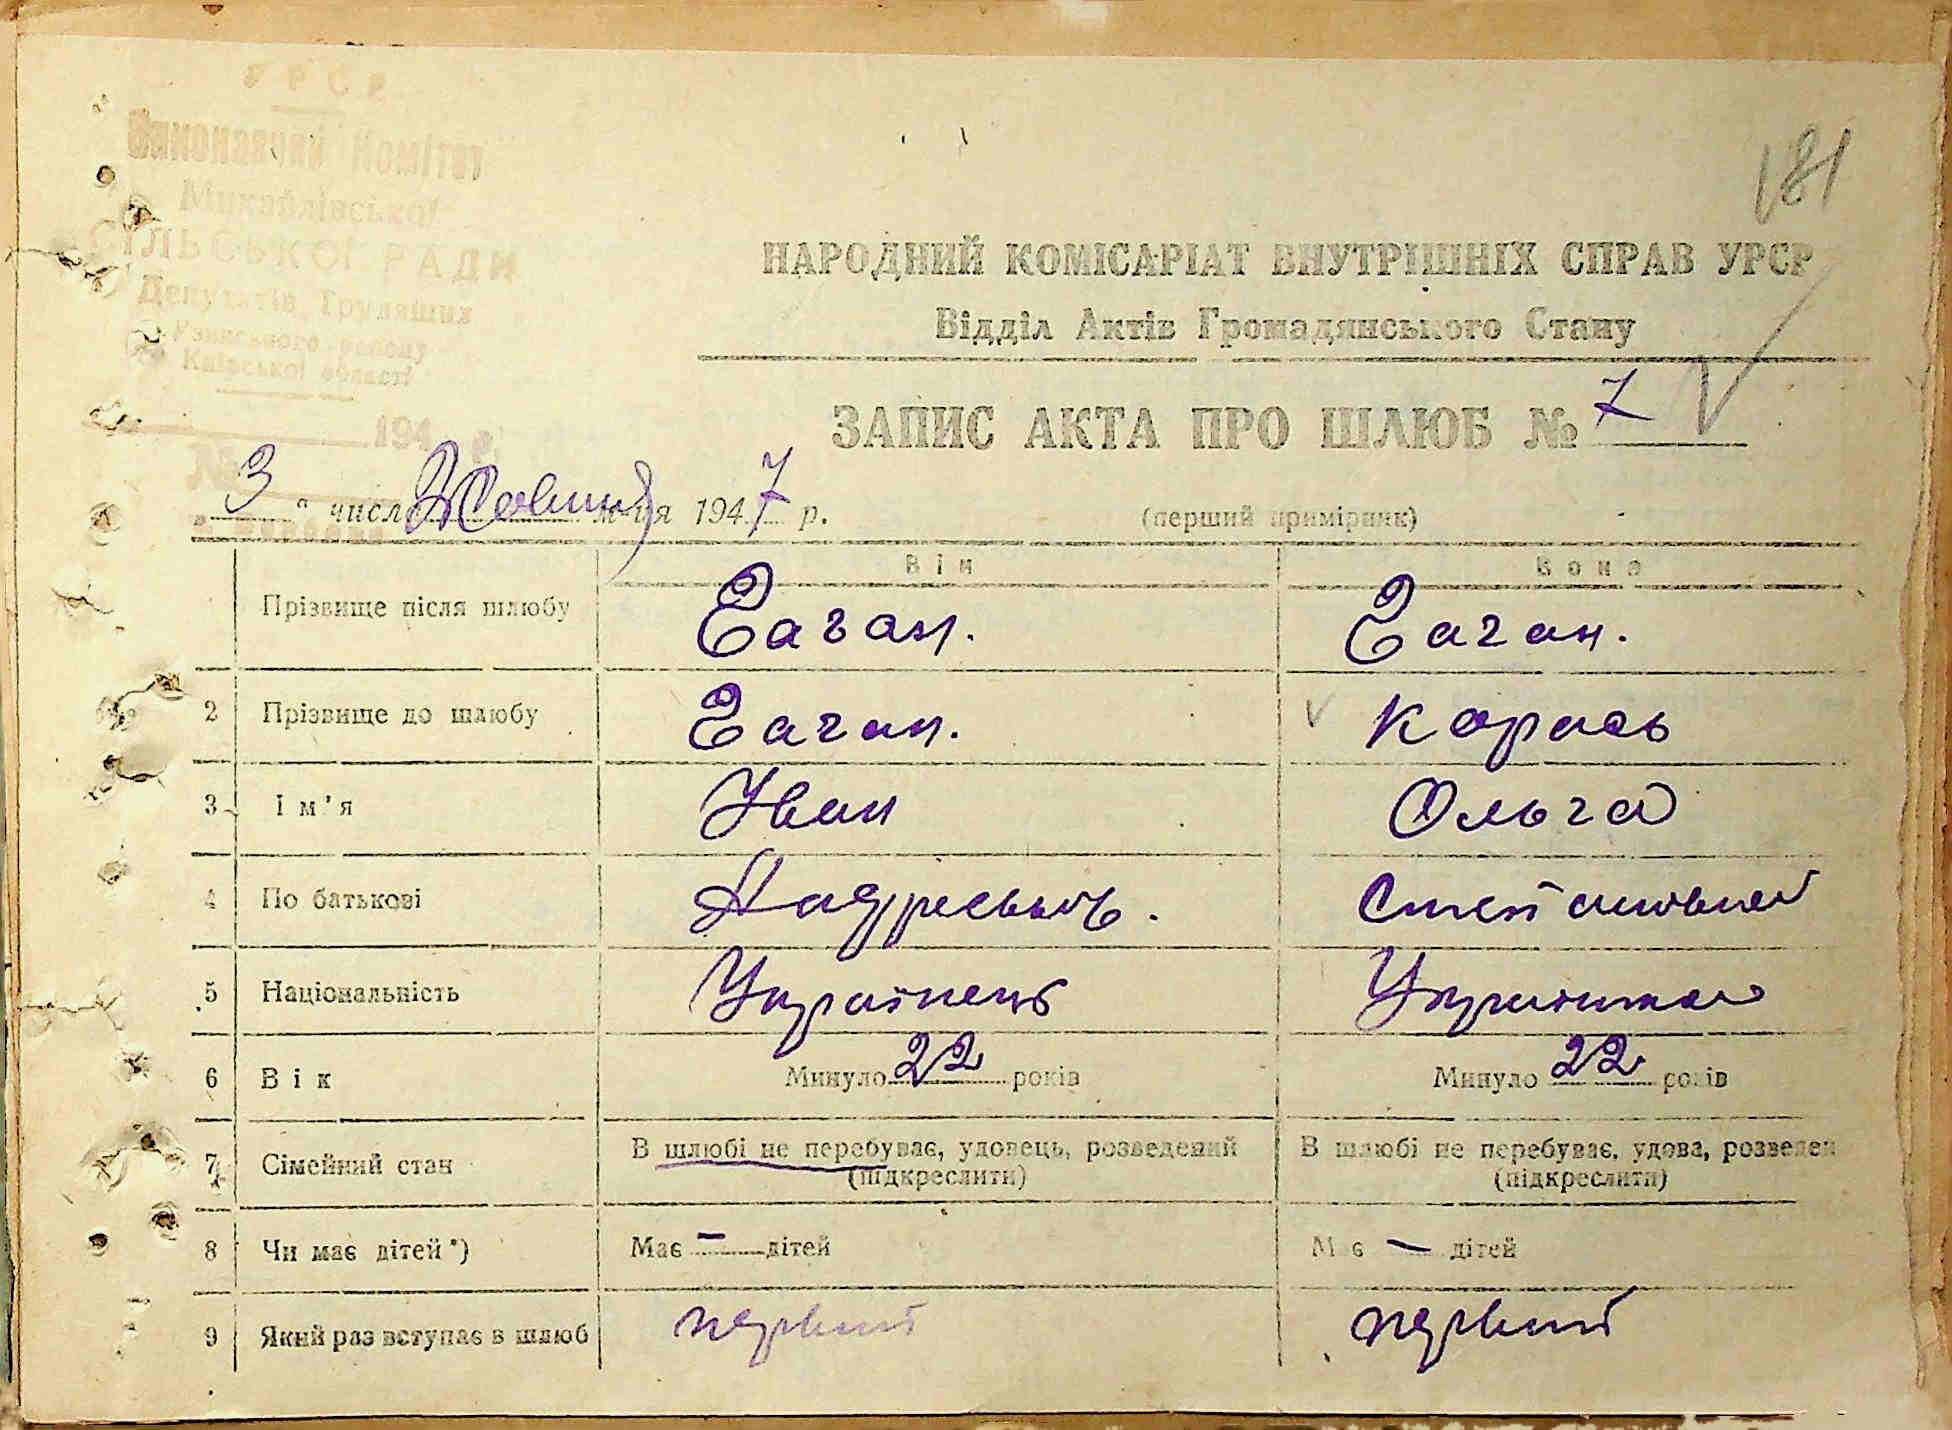 УРСР
Виконавчий Комітет
Михайлівської
СІЛЬСЬКОЇ РАДИ
Депутатів Трудящих
Узинського району
Київської області
194 р.
№
181
НАРОДНИЙ КОМІСАРІАТ ВНУТРІШНІХ СПРАВ УРСР
Відділ Актів Громадянського Стану
ЗАПИС АКТА ПРО ШЛЮБ № 7
„ 3 " числа Жовтня м-ця 1947 р. (перший примірник)
Він Вона
Прізвище після шлюбу Заган. Заган.
2 Прізвище до шлюбу Заган. Карась
3 Ім'я Іван Ольга
4 По батькові Андреевич. Степановна
5 Національність Українець Українка
6 Вік Минуло 22 років Минуло 22 років
7 Сімейний стан В шлюбі не перебуває, удовець, розведений В шлюбі не перебуває, удова, розведен
(підкреслити) (підкреслити)
8 Чи має дітей *) Має — дітей Має — дітей
9 Який раз вступає в шлюб первий первий